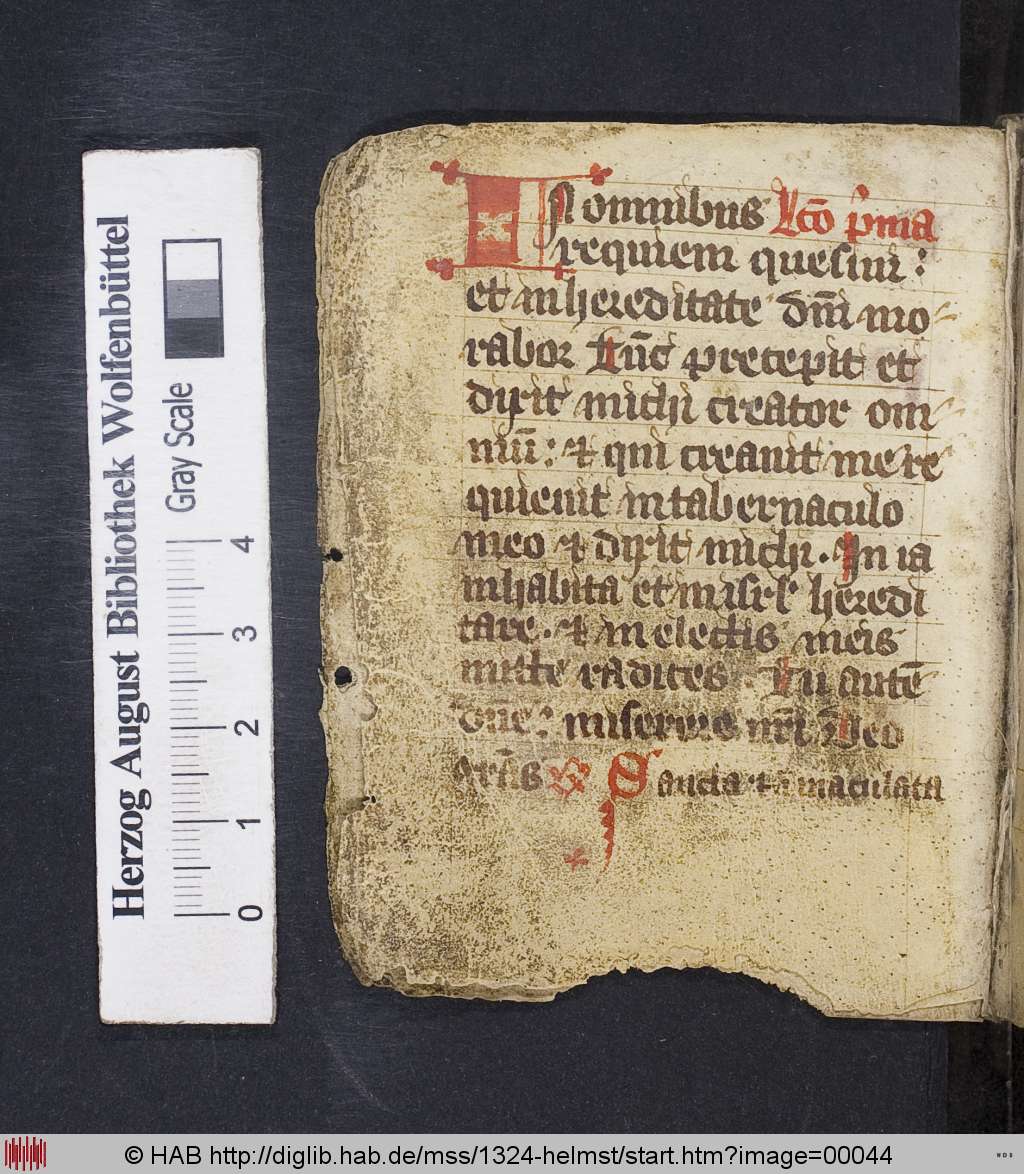 Herzog August Bibliothek Wolfenbüttel
Gray Scale
4
3
2
1
0
In omnibus Lcō p̄ma
requiem quesiui:
et in hereditate dn̄i mo
rabor Tūc precepit et
dixit michi creator om
niū: et qui creauit me re
quieuit in tabernaculo
meo et dixit michi. In ia
inhabita et in isrl̄ heredi
tare. et in electis meis
mitte radices. Tu autē
dn̄e: miserere nr̄i Deo
gr̄as Sancta et ī maculata
© HAB http://diglib.hab.de/mss/1324-helmst/start.htm?image=00044